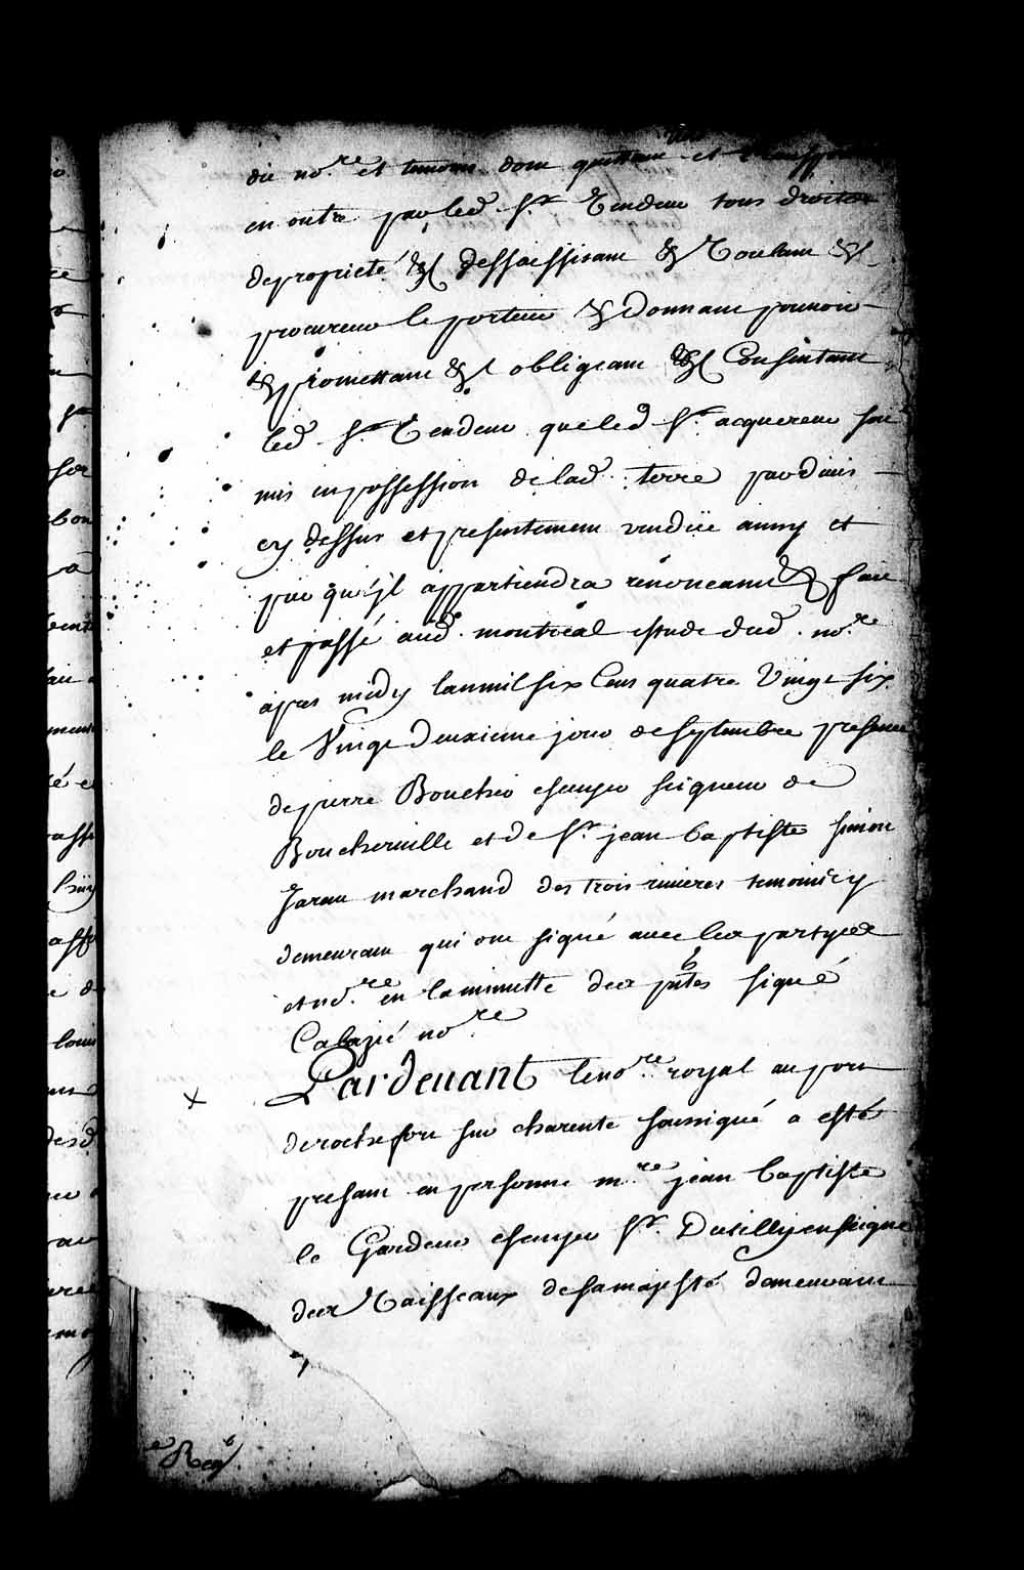 dit no.re et temoins dont quittant et transportant
en outre par led. Sr. Vendeur tous droitz
de proprieté &c dessaississant &c Voulant &c
procureur le porteur &c Donnant pouvoir
&c promettant &c obligeant &c Consentant
led. Sr. Vendeur que led. Sr. acquereur soit
mis en possession de lad. terre par
cy dessus et presentement vendüe ainsy et
par qu'jl appartiendra renonceant &c fait
et passé aud. montreal estude dud. no.re
apres midy lan mil six Cens quatre Vingt six
le Vingt deuxieme jour de septembre presence
de pierre Boucher escuyer seigneur de
Boucherville et de Sr. jean baptiste
marchand des trois rivieres temoins cy
demeurant qui ont signé avec les partyes
et no.re en la minutte des pntes signé
Cabazié no.re
Pardevant le no.re royal au port
de rochefort sur charente soussigné a esté
present en personne m.re jean baptiste
le Gardeur escuyer Sr. Dutilly enseigne
des Vaisseaux de sa majesté demeurant